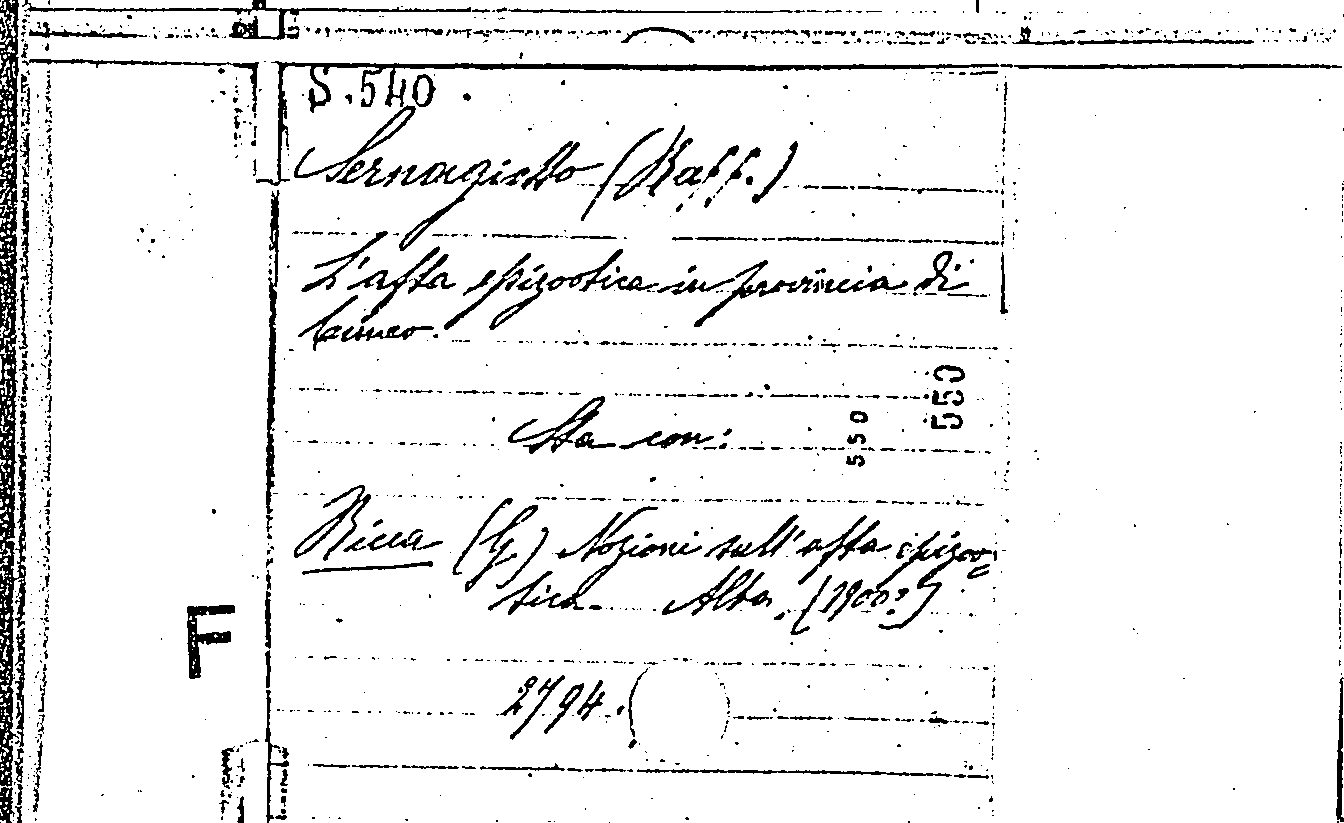 S.540.
Sernagiotto (Raff.)
L'afta epizootica in provincia di
Cuneo.
Sta con:
550
550
Ricca (G.) Nozioni sull'afta epizoo=
tica. Alba, (1900?)
F
2794.